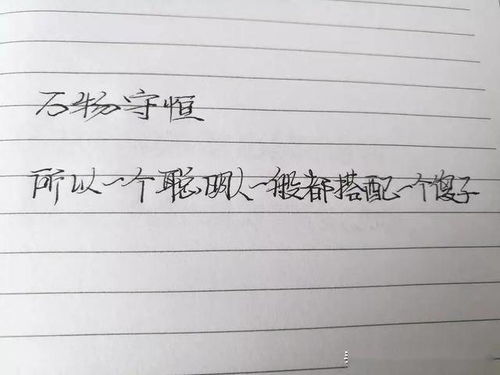 万物守恒
所以一个聪明人一般都搭配一个傻子